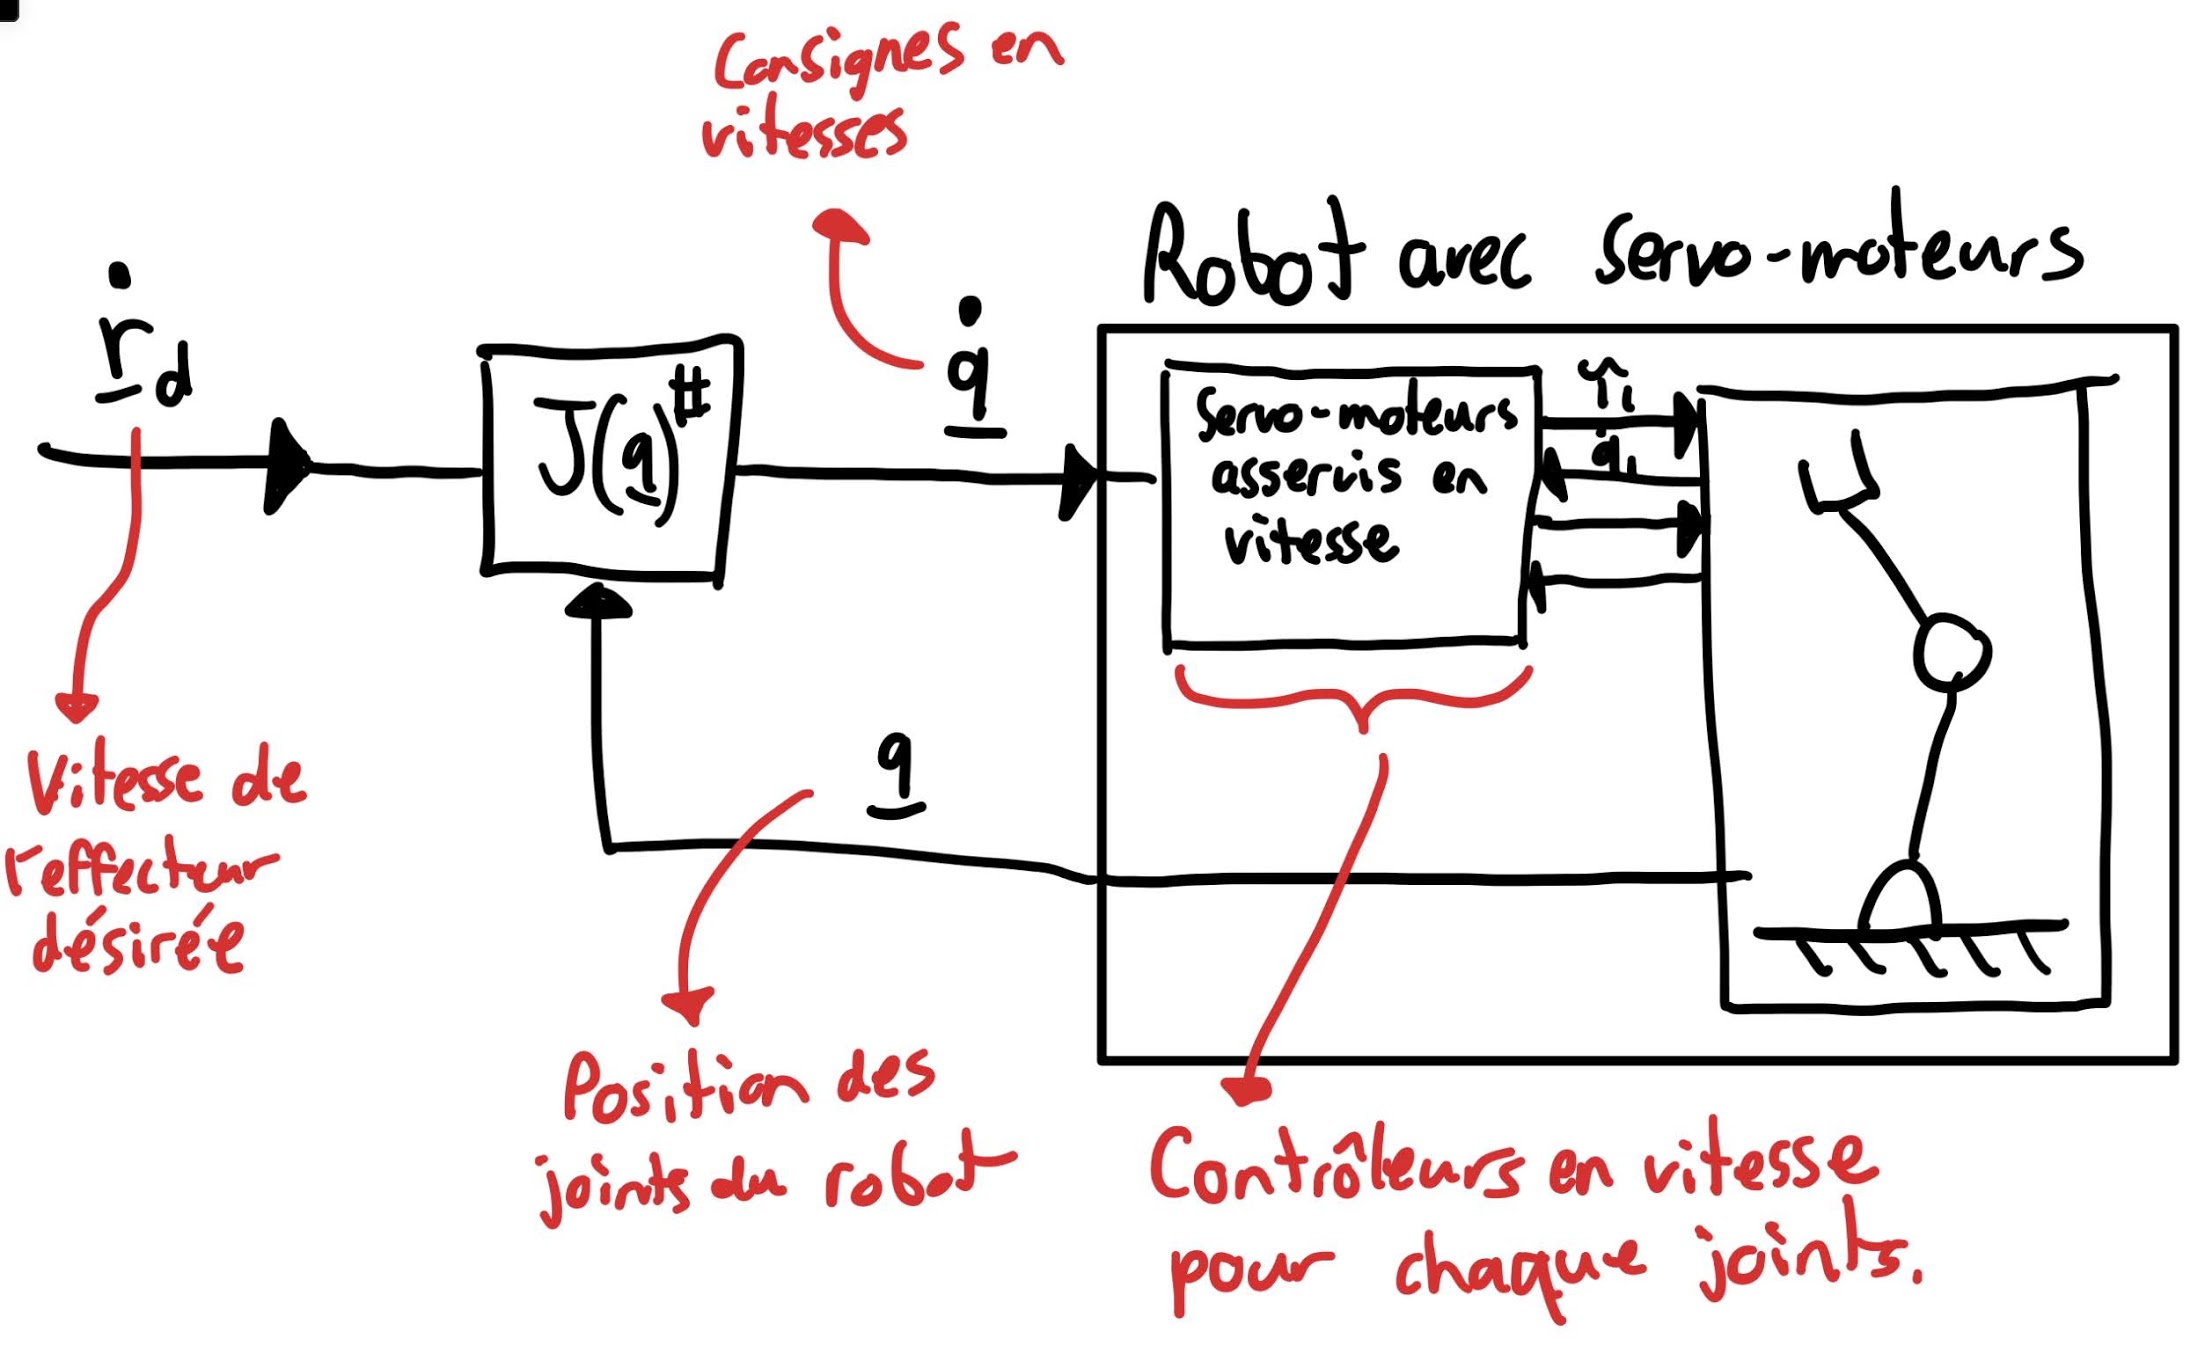 Consignes en
vitesses
Robot avec servo-moteurs
ṙd
J(q)#
q̇
Servo-moteurs
asservis en
vitesse
τ1
q̇1
q
Vitesse de
l'effecteur
désirée
Position des
joints du robot
Contrôleurs en vitesse
pour chaque joints.